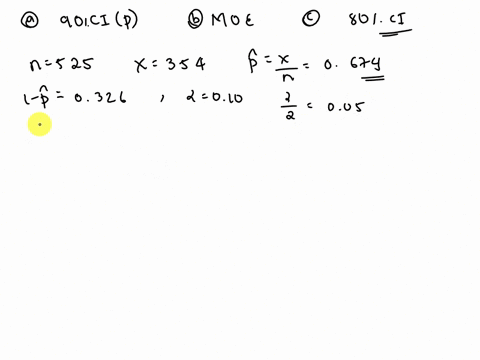 ⓐ 90%.CI(p) ⓑ MOE ⓒ 80%.CI
n=525 x=354 p̂=x/n=0.674
1-p̂=0.326 , α=0.10 α/2=0.05